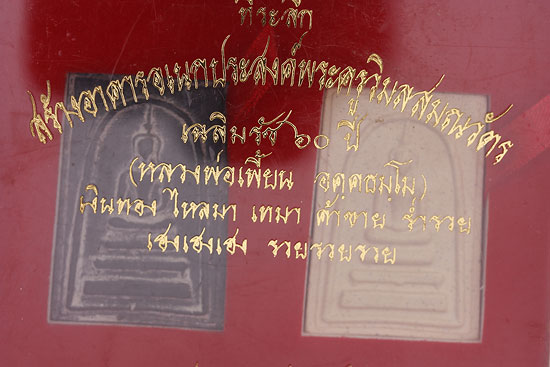 ที่ระลึก
สร้างอาคารอเนกประสงค์พระครูวิมลสมณวัตร
เฉลิมรัช ๖๐ ปี
(หลวงพ่อเพี้ยน อคฺคธมฺโม)
เงินทอง ไหลมา เทมา ค้าขาย ร่ำรวย
เฮงเฮงเฮง รวยรวยรวย